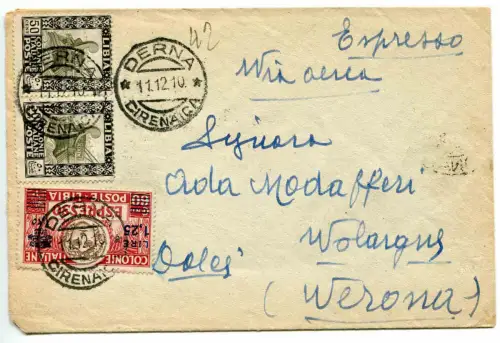 42
Espresso
Via aerea
Signora
Ada Modafferi
Volargne
Dolcé
(Verona)
DERNA
11.12.10.
CIRENAICA
50
LIBIA
COLONIE ITALIANE
POSTE
LIBIA
POSTE
DERNA
CIRENAICA
60
ESPR
POSTE LIBIA
LIRE
1,25
COLONIE ITALIANE
DERNA
CIRENAICA